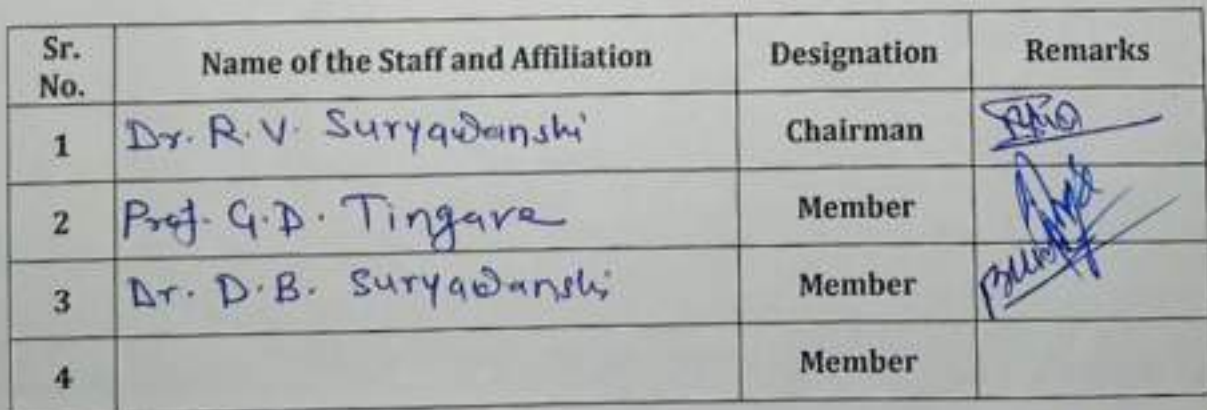 Sr. No. Name of the Staff and Affiliation Designation Remarks
1 Dr. R.V. Suryawanshi Chairman
2 Prof. G.D. Tingare Member
3 Dr. D.B. Suryawanshi Member
4 Member